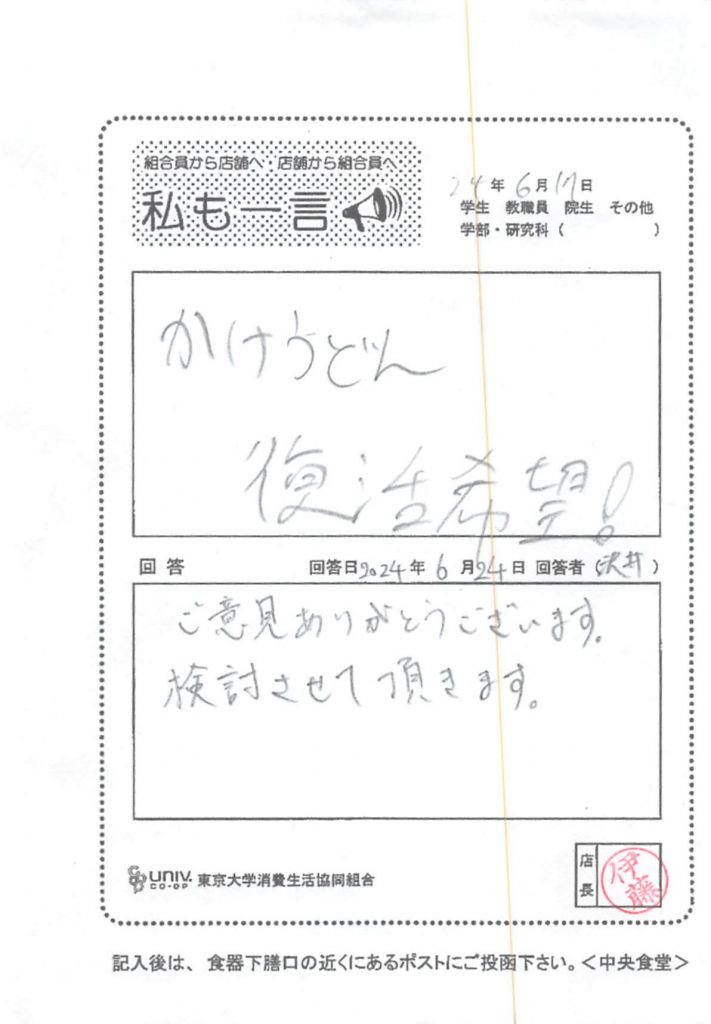 組合員から店舗へ・店舗から組合員へ
私も一言
24年6月17日
学生 教職員 院生 その他
学部・研究科（ ）
かけうどん
復活希望!
回答 回答日2024年6月24日 回答者（沢井）
ご意見ありがとうございます。
検討させて頂きます。
UNIV. CO-OP 東京大学消費生活協同組合
店長 伊藤
記入後は、食器下膳口の近くにあるポストにご投函下さい。＜中央食堂＞